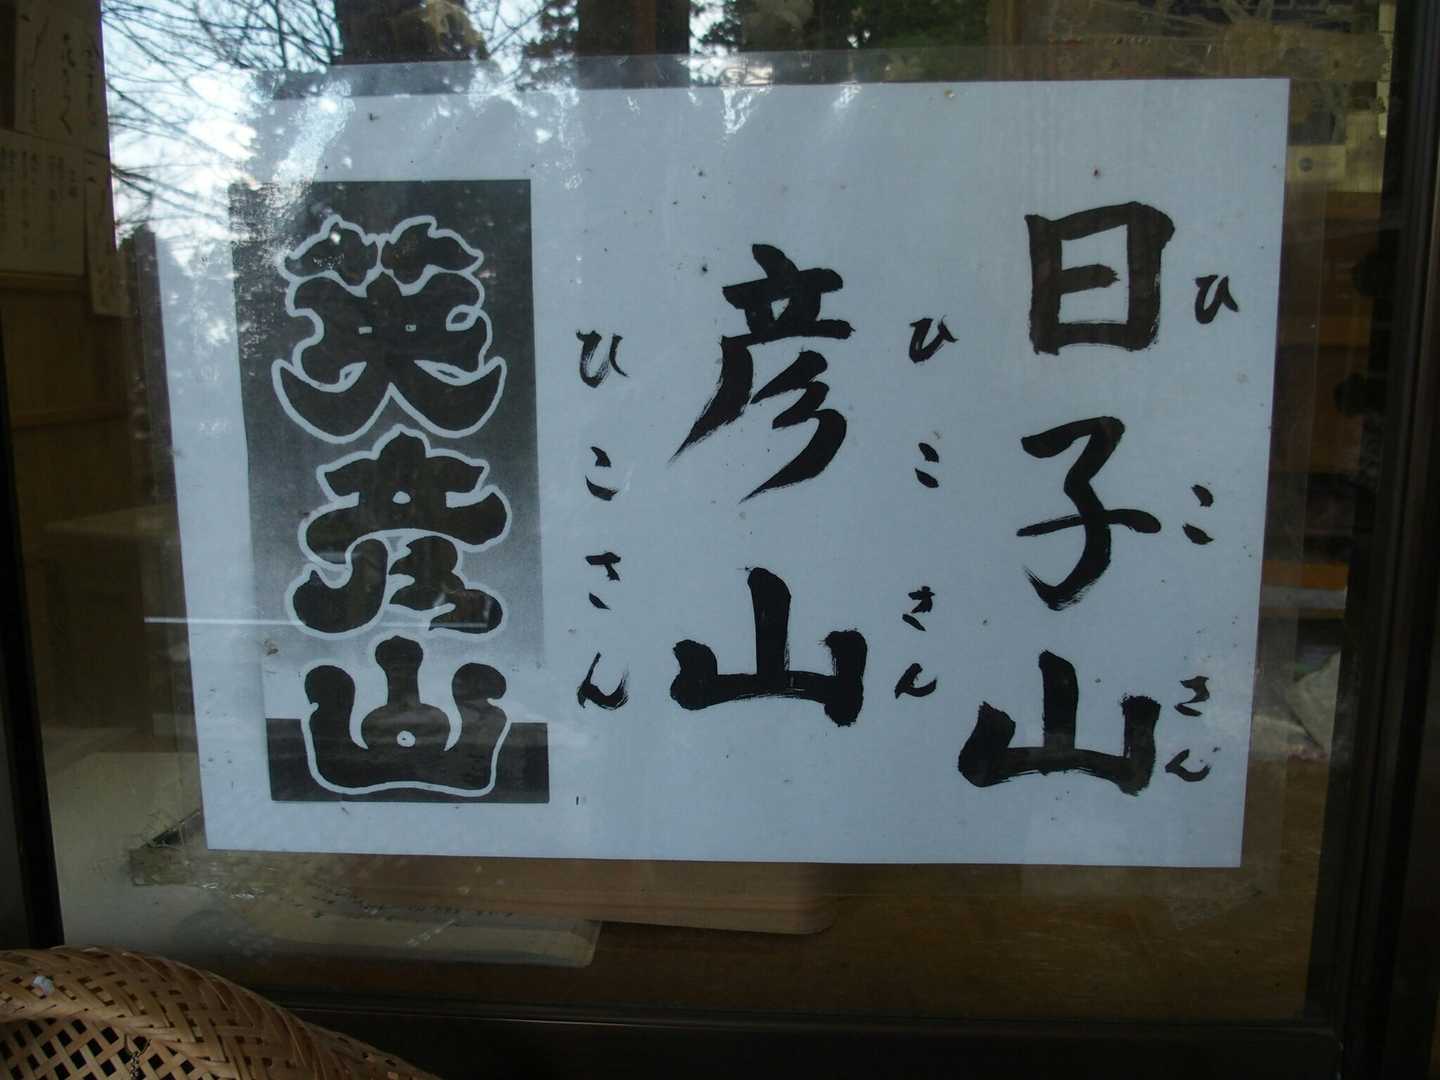 日子山
ひこさん
彦山
ひこさん
英彦山
ひこさん